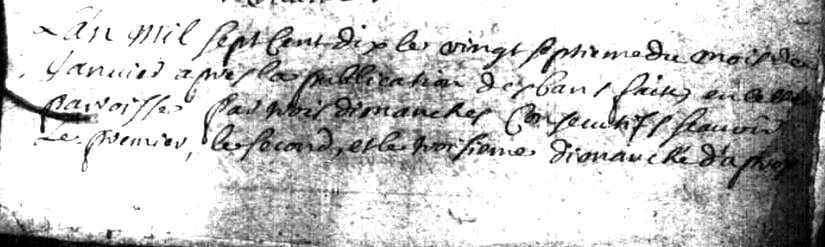 L'an mil sept cent dix le vingt septieme du mois de
Janvier apres la publication des bans faites en cette
paroisse par trois dimanches consecutifs scavoir
Le premier, le second, et le troisieme dimanche d'apres